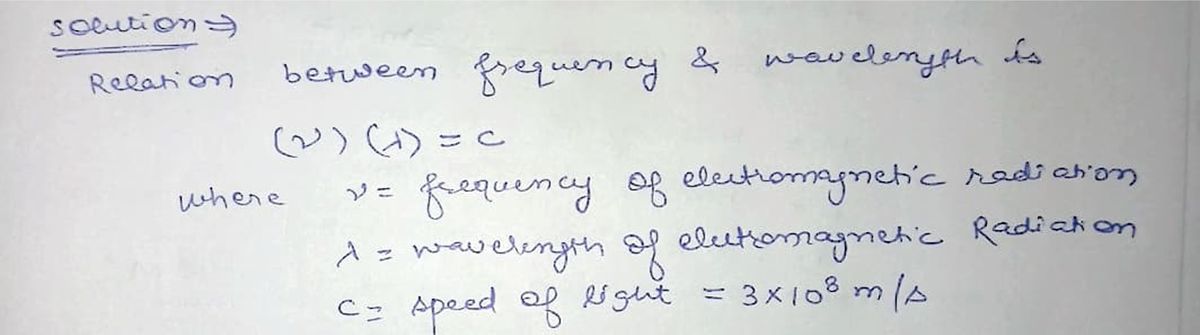 solution ⇒
Relation between frequency & wavelength is
(ν) (λ) = c
where ν = frequency of eletromagnetic radiation
λ = wavelength of eletromagnetic Radiation
C = speed of light = 3×10⁸ m/s